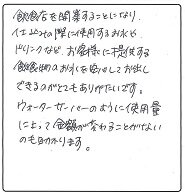 飲食店を開業することになり、
仕込みの際に使用するお水や
ドリンクなど、お客様に提供する
飲食物のお水を安心してお出し
できるのがとてもありがたいです。
ウォーターサーバーのように使用量
によって金額が変わることがない
のも助かります。